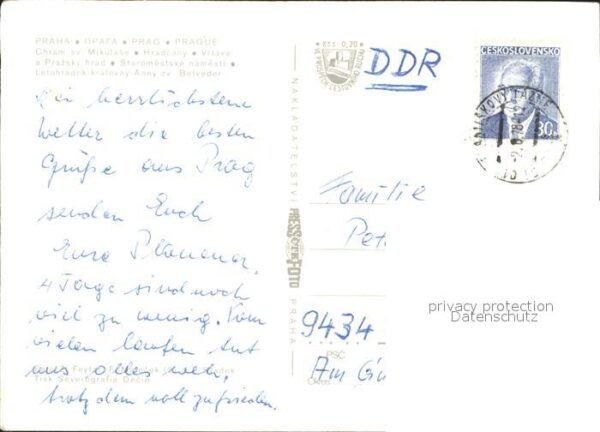 PRAHA • ПРАГА • PRAG • PRAGUE
Chrám sv. Mikuláše • Hradčany • Vltava
a Pražský hrad • Staroměstské náměstí •
Letohrádek královny Anny zv. Belveder
Bei herrlichstem
Wetter die besten
Grüße aus Prag
senden Euch
Eure
4 Tage sind noch
viel zu wenig. Vom
vielen laufen tut
uns alles weh,
trotzdem voll zufrieden.
Tisk Severografia Děčín
NAKLADATELSTVÍ
PRESSFOTO
PRAHA
Kčs 0,20
DDR
ČESKOSLOVENSKO
30h
Familie
Pet
9434
PSČ
Am
Okres
privacy protection
Datenschutz